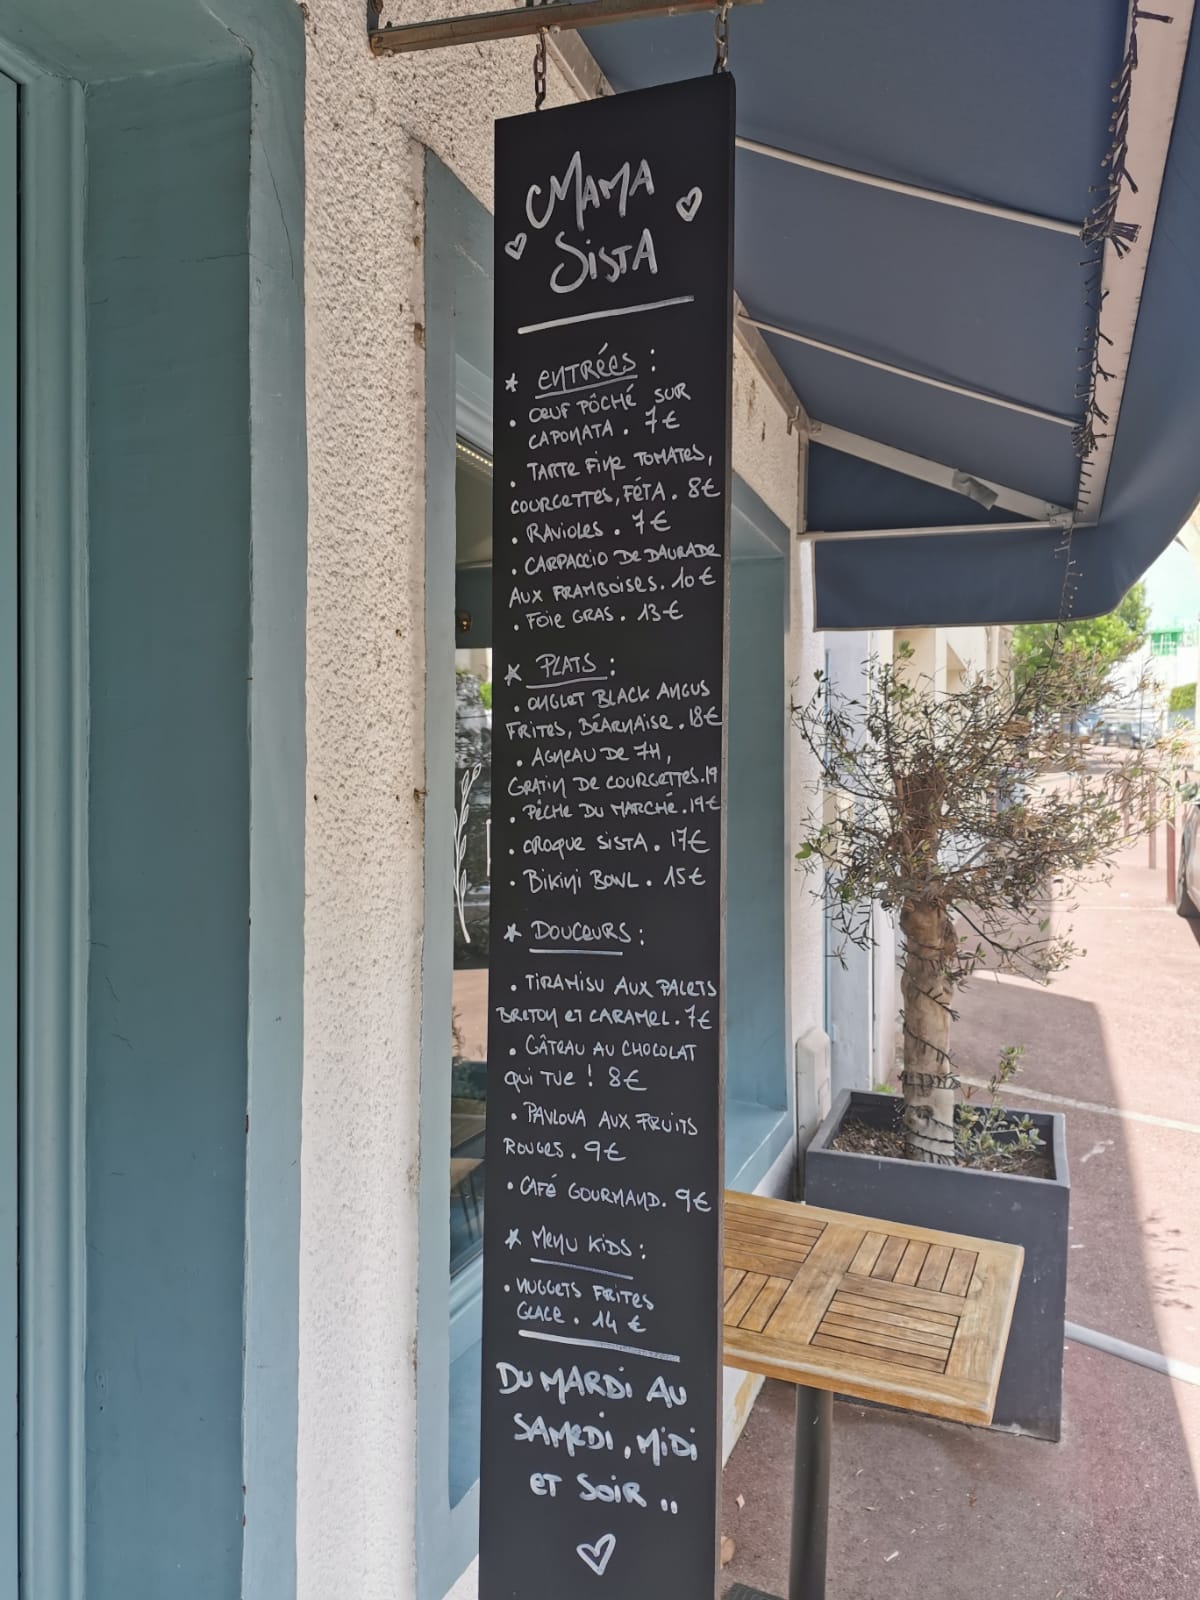 MAMA
SISTA
* ENTRÉES :
. ŒUF PÔCHÉ SUR
CAPONATA . 7€
. TARTE FINE TOMATES,
COURGETTES, FÉTA . 8€
. RAVIOLES . 7€
. CARPACCIO DE DAURADE
AUX FRAMBOISES . 10€
. FOIE GRAS . 13€
* PLATS :
. ONGLET BLACK ANGUS
FRITES, BÉARNAISE . 18€
. AGNEAU DE 7H,
GRATIN DE COURGETTES . 19
. PÊCHE DU MARCHÉ . 19€
. CROQUE SISTA . 17€
. BIKINI BOWL . 15€
* DOUCEURS :
. TIRAMISU AUX PALETS
BRETON ET CARAMEL . 7€
. GÂTEAU AU CHOCOLAT
QUI TUE ! 8€
. PAVLOVA AUX FRUITS
ROUGES . 9€
. CAFÉ GOURMAND . 9€
* MENU KIDS :
. NUGGETS FRITES
GLACE . 14€
DU MARDI AU
SAMEDI, MIDI
ET SOIR ..